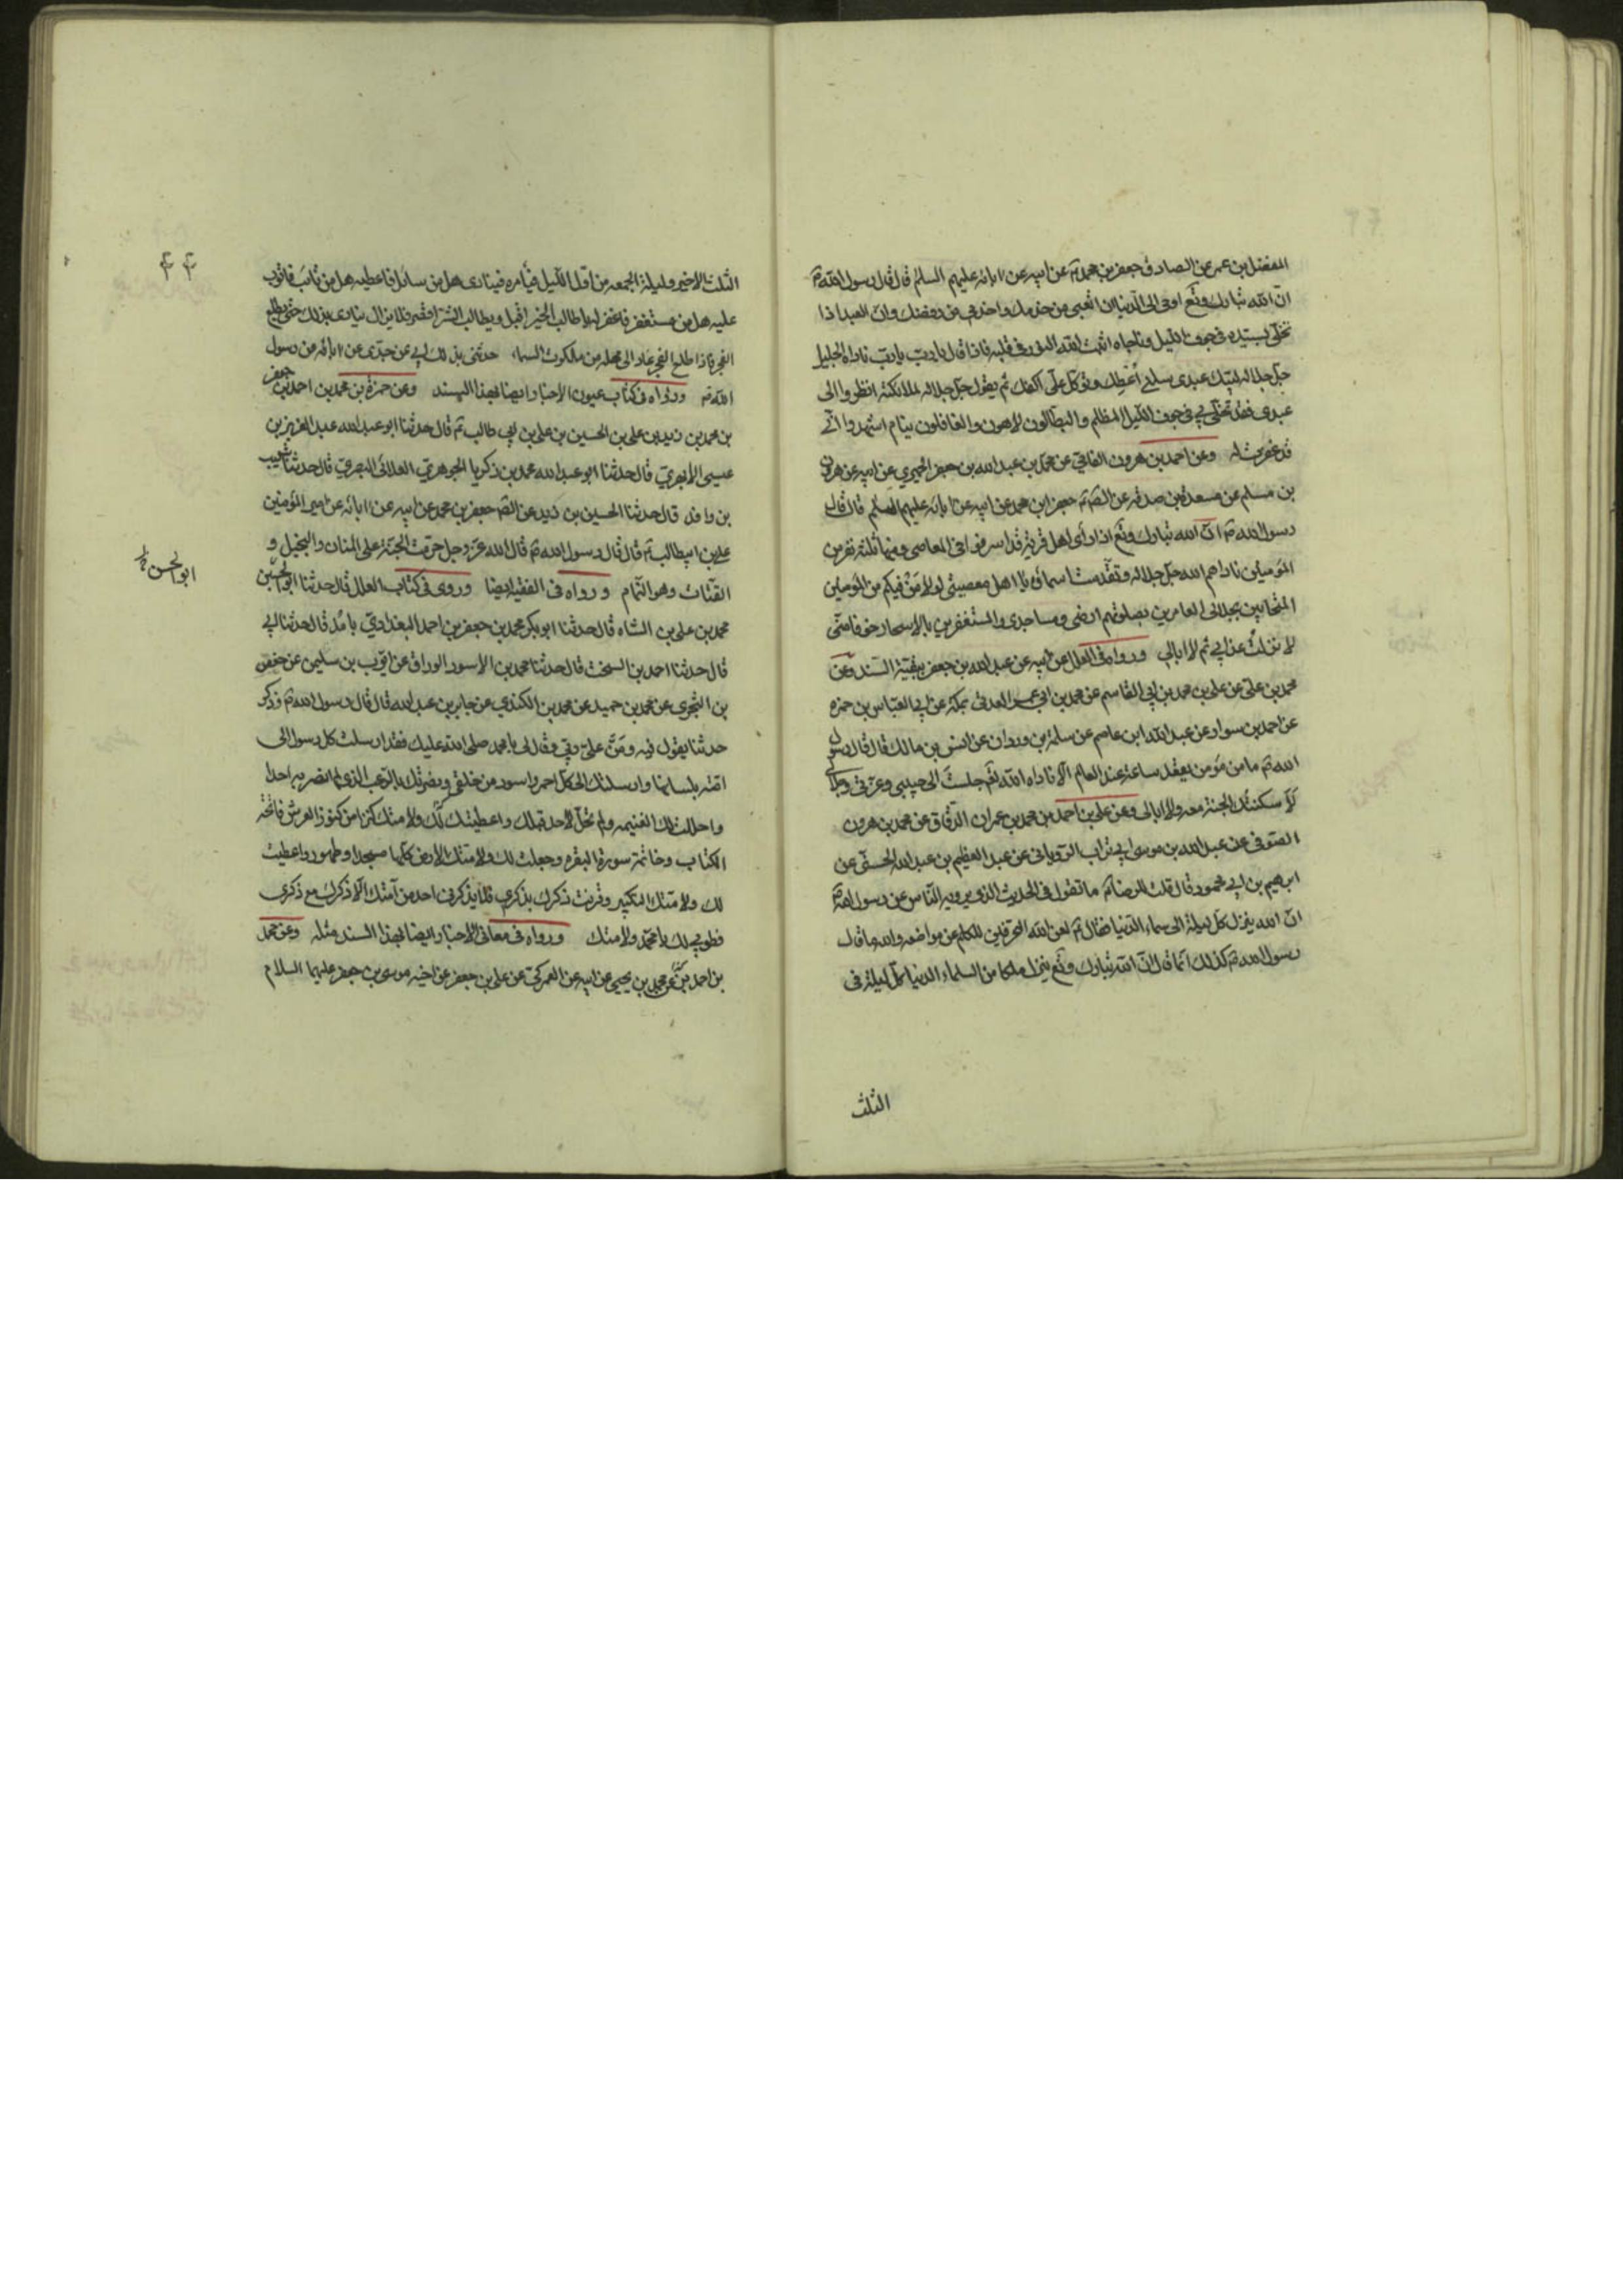 المفضل بن عمر عن الصادق جعفر بن محمد عن ابيه عن ابائه عليهم السلم قال قال رسول الله ص
ان الله تبارك وتع اوحى الى الدنيا ان اتعبي من خدمك واخدمي من رفضك وان العبد اذا
تخلى بسيده في جوف الليل وناجاه اثبت الله النور في قلبه فاذا قال يا رب يا رب ناداه الجليل
جل جلاله لبيك عبدي سلني أعطك وتوكل علي اكفك ثم يقول جل جلاله لملائكته انظروا الى
عبدي فقد تخلى بي في جوف الليل المظلم والبطالون لاهون والغافلون ينام اشهدوا اني
قد غفرت له وعن احمد بن هرون الفامي عن محمد بن عبد الله بن جعفر الحميري عن ابيه عن هرون
بن مسلم عن مسعدة بن صدقه عن الصم جعفر ابن محمد عن ابيه عن ابائه عليهم السلم قال قال
رسول الله ص ان الله تبارك وتع اذا رأى اهل قرية قد اسرفوا في المعاصي وفيها ثلثة نفر من
المؤمنين ناداهم الله جل جلاله وتقدست اسمائه يا اهل معصيتي لولا مَن فيكم من المؤمنين
المتحابين بجلالي العامرين بصلوتهم ارضي ومساجدي والمستغفرين بالاسحار خوفا مني
لانزلت عذابي ثم لا ابالي ورواه في العلل عن ابيه عن عبد الله بن جعفر ببقية السند وعن
محمد بن علي عن علي بن محمد بن ابي القاسم عن محمد بن ابي عمر العدني بمكة عن ابي العباس بن حمزه
عن احمد بن سوار عن عبد الله ابن عاصم عن سلمة بن وردان عن انس بن مالك قال قال رسول
الله ص ما من مؤمن يقعد ساعة عند العالم الا ناداه الله تع جلست الى حبيبي وعزتي وجلالي
لأسكنتك الجنة معه ولا ابالي وعن علي بن احمد بن محمد بن عمران الدقاق عن محمد بن هرون
الصوفي عن عبد الله بن موسى ابي تراب الروياني عن عبد العظيم بن عبد الله الحسني عن
ابرهيم بن ابي محمود قال قلت للرضا ع ما تقول في الحديث الذي يرويه الناس عن رسول الله ص
ان الله ينزل كل ليلة الى سماء الدنيا فقال ع لعن الله المحرفين للكلم عن مواضعه والله ما قال
رسول الله ص كذلك انما قال ان الله تبارك وتع ينزل ملكا من السماء الدنيا كل ليلة في
الثلث
۴۴
الثلث الاخير وليلة الجمعه من اول الليل فيأمره فينادى هل من سائل فاعطيه هل من تائب فاتوب
عليه هل من مستغفر فاغفر له يا طالب الخير اقبل ويا طالب الشر اقصر فلا يزال ينادى بذلك حتى يطلع
الفجر فاذا طلع الفجر عاد الى محله من ملكوت السماء حدثني بذلك ابي عن جدى عن ابائه من رسول
الله ص ورواه في كتاب عيون الاخبار ايضا بهذا السند وعن حمزة بن محمد بن احمد بن جعفر
بن محمد بن زيد بن علي بن الحسين بن علي بن ابي طالب ع قال حدثنا ابو عبد الله عبد العزيز بن
عيسى الابهري قال حدثنا ابو عبد الله محمد بن زكريا الجوهري الغلائي البصري قال حدثنا شعيب
بن واقد قال حدثنا الحسين بن زيد عن الصم جعفر بن محمد عن ابيه عن ابائه عن امير المؤمنين
علي بن ابيطالب ع قال قال رسول الله ص قال الله عز وجل حرمت الجنة على المنان والبخيل و
القتات وهو النمام ورواه في الفقيه ايضا وروى في كتاب العلل قال حدثنا ابو الحسين
ابو الحسن
محمد بن علي بن الشاه قال حدثنا ابو بكر محمد بن جعفر بن احمد البغدادي بآمد قال حدثنا ابي
قال حدثنا احمد بن السخت قال حدثنا محمد بن الاسود الوراق عن ايوب بن سليمن عن حفص
بن البختري عن محمد بن حميد عن محمد بن الكندي عن جابر بن عبد الله قال قال رسول الله ص وذكر
حديثا يقول فيه ومَنَّ علي ربي وقال لي يا محمد صلى الله عليك فقد ارسلت كل رسول الى
امته بلسانها وارسلتك الى كل احمر واسود من خلقي ونصرتك بالرعب الذى لم انصر به احدا
واحللت لك الغنيمه ولم تحل لاحد قبلك واعطيتك لك ولامتك كنزا من كنوز العرش فاتحة
الكتاب وخاتمة سورة البقره وجعلت لك ولامتك الارض كلها مسجدا وطهور واعطيت
لك ولامتك التكبير وقرنت ذكرك بذكري فلا يذكرني احد من امتك الا ذكرك مع ذكرى
فطوبى لك يا محمد ولامتك ورواه في معاني الاخبار ايضا بهذا السند مثله وعن محمد
بن احمد عن محمد بن يحيى عن ابيه عن العمركي عن علي بن جعفر عن اخيه موسى بن جعفر عليهما السلام